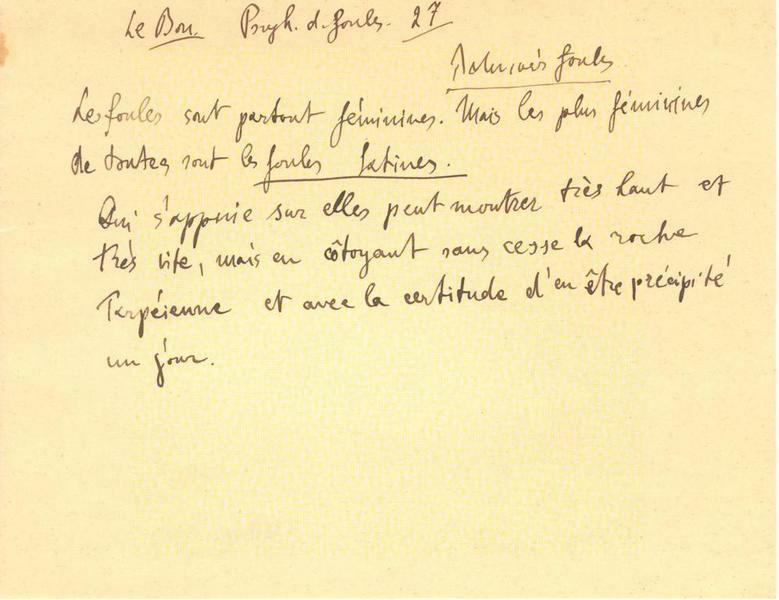 Le Bon. Psych. d. foules. 27
foules
Les foules sont partout féminines. Mais les plus féminines
de toutes sont les foules latines.
Qui s'appuie sur elles peut montrer très haut et
très vite, mais en côtoyant sans cesse la roche
Tarpéienne et avec la certitude d'en être précipité
un jour.